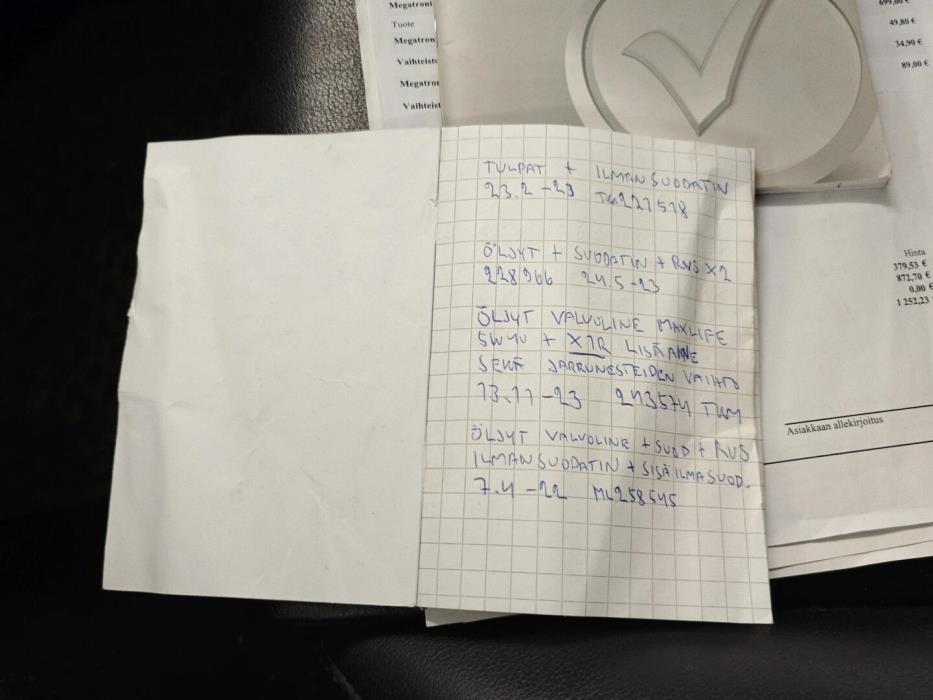 Megatroni
Tuote
Megatron
Vaihteisto
Megatron
Vaihteist
699,00 €
49,80 €
34,90 €
89,00 €
TULPAT + ILMANSUODATIN
23.2 -23 TKM 227578
ÖLJYT + SUODATIN + RVS X2
228966 24.5 -23
ÖLJYT VALVOLINE MAXLIFE
5W40 + X1R LISÄAINE
SEKÄ JARRUNESTEIDEN VAIHTO
13.11 -23 243574 TKM
ÖLJYT VALVOLINE + SUOD + RVS
ILMANSUODATIN + SISÄILMASUOD.
7.4 -22 258545
Hinta
379,53 €
872,70 €
0,00 €
1 252,23
Asiakkaan allekirjoitus